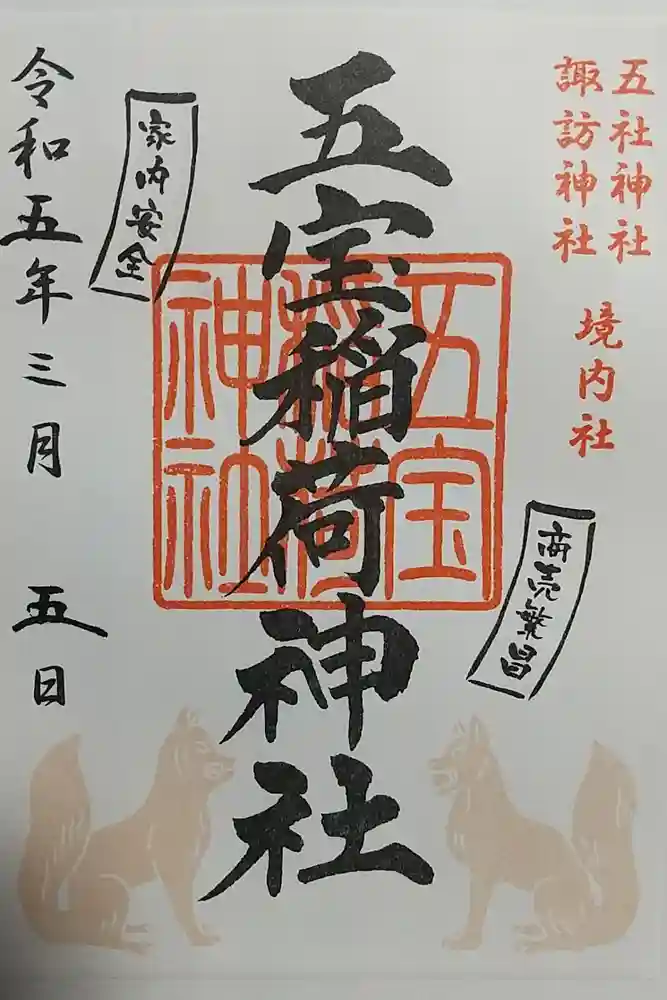 五社神社
諏訪神社
境内社
五宝稲荷神社
五宝
稲荷
神社
商売繁昌
家内安全
令和五年三月 五日